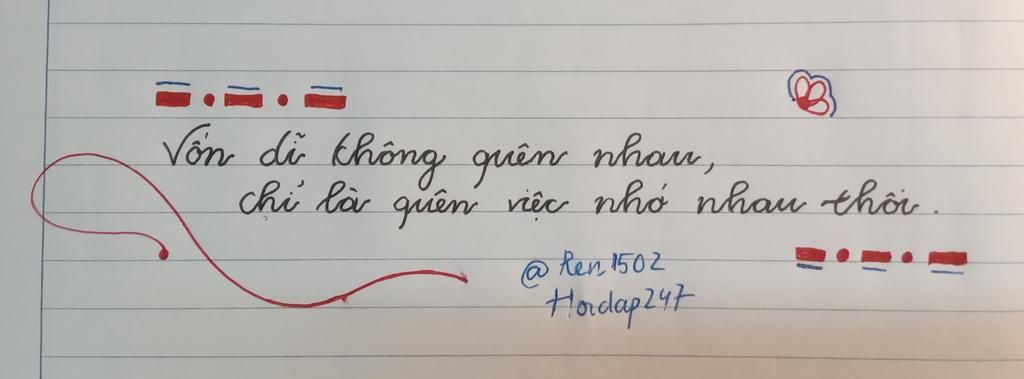 Vốn dĩ không quên nhau,
chỉ là quên việc nhớ nhau thôi.
@Ren1502
Hoidap247